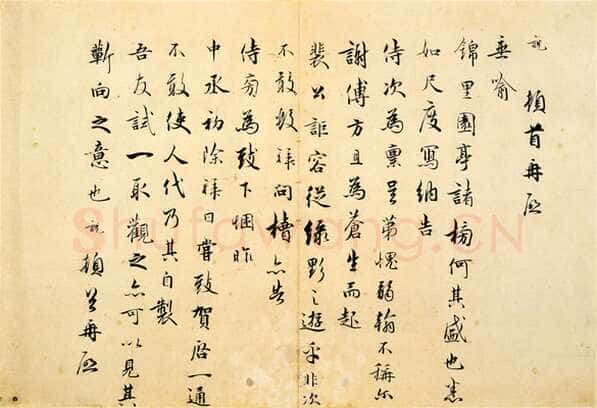 說 頓首再啓
垂喻
錦里園亭諸榜何其盛也悉
如尺度寫納告
侍次為稟呈第愧弱翰不稱尔
謝傅方且為蒼生而起
裴公詎容從綠野之遊乎非次
不敢數拜問櫝亦告
侍旁為致下悃昨
中丞初除拜日嘗致賀啓一通
不敢使人代乃其自製
吾友試一取觀之亦可以見其
蘄向之意也說頓首再啓
Shufawang.CN